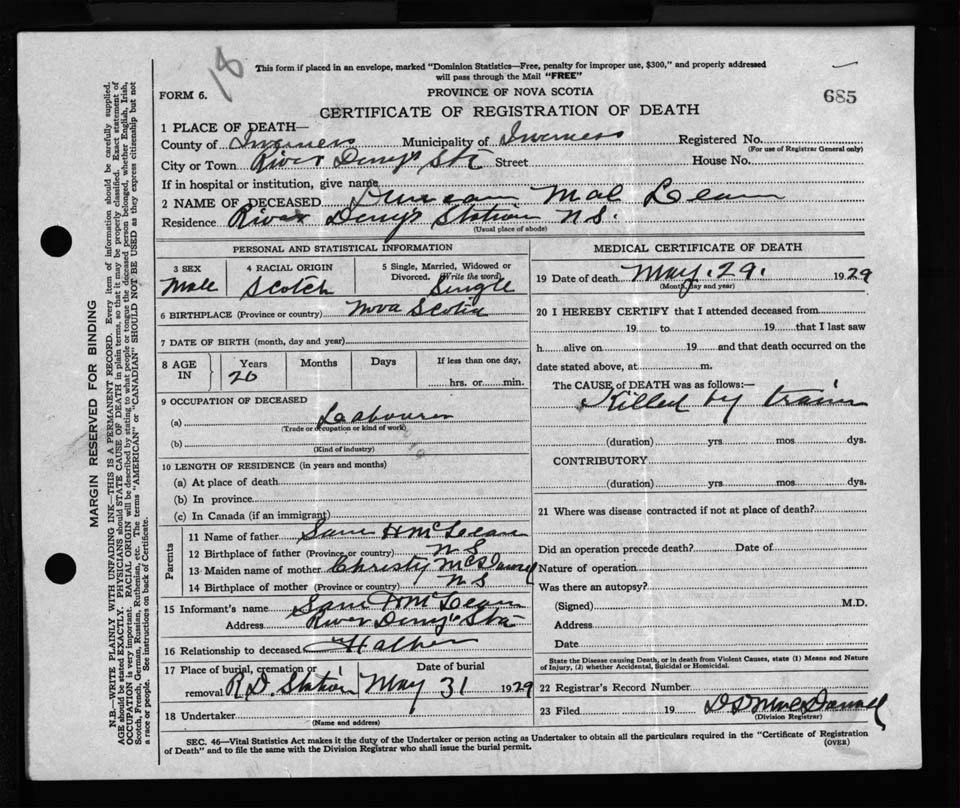 18
This form if placed in an envelope, marked "Dominion Statistics—Free, penalty for improper use, $300," and properly addressed
will pass through the Mail "FREE"
FORM 6.
PROVINCE OF NOVA SCOTIA
685
CERTIFICATE OF REGISTRATION OF DEATH
1 PLACE OF DEATH—
County of Inverness Municipality of Inverness Registered No.
(For use of Registrar General only)
City or Town River Denys Sta Street House No.
If in hospital or institution, give name
2 NAME OF DECEASED Duncan Mac Lean
Residence River Denys Station N.S.
(Usual place of abode)
PERSONAL AND STATISTICAL INFORMATION
3 SEX 4 RACIAL ORIGIN 5 Single, Married, Widowed or
Divorced. (Write the word)
Male Scotch Single
6 BIRTHPLACE (Province or country) Nova Scotia
7 DATE OF BIRTH (month, day and year)
8 AGE IN Years Months Days If less than one day,
20 hrs. or min.
9 OCCUPATION OF DECEASED
(a) Labourer
(Trade or occupation or kind of work)
(b)
(Kind of industry)
10 LENGTH OF RESIDENCE (in years and months)
(a) At place of death
(b) In province
(c) In Canada (if an immigrant)
Parents
11 Name of father Sam H McLean
12 Birthplace of father (Province or country) N S
13 Maiden name of mother Christy
14 Birthplace of mother (Province or country) N S
15 Informant's name Sam H McLean
Address River Denys Sta
16 Relationship to deceased Father
17 Place of burial, cremation or removal R.D. Station Date of burial May 31 1929
18 Undertaker
(Name and address)
MEDICAL CERTIFICATE OF DEATH
19 Date of death May. 29. 1929
(Month, day and year)
20 I HEREBY CERTIFY that I attended deceased from
19 to 19 that I last saw
h alive on 19 and that death occurred on the
date stated above, at m.
The CAUSE of DEATH was as follows:—
Killed by train
(duration) yrs. mos. dys.
CONTRIBUTORY
(duration) yrs. mos. dys.
21 Where was disease contracted if not at place of death?
Did an operation precede death? Date of
Nature of operation
Was there an autopsy?
(Signed) M.D.
Address
Date
State the Disease causing Death, or in death from Violent Causes, state (1) Means and Nature
of Injury, (2) whether Accidental, Suicidal or Homicidal.
22 Registrar's Record Number
23 Filed 19
(Division Registrar)
SEC. 46—Vital Statistics Act makes it the duty of the Undertaker or person acting as Undertaker to obtain all the particulars required in the "Certificate of Registration
of Death" and to file the same with the Division Registrar who shall issue the burial permit.
(OVER)
MARGIN RESERVED FOR BINDING
N.B.—WRITE PLAINLY WITH UNFADING INK—THIS IS A PERMANENT RECORD. Every item of information should be carefully supplied.
AGE should be stated EXACTLY. PHYSICIANS should STATE CAUSE OF DEATH in plain terms, so that it may be properly classified. Exact statement of
OCCUPATION is very important. RACIAL ORIGIN will be described by stating to what people or tongue the deceased person belonged, whether English, Irish,
Scotch, French, German, Russian, Ruthenian, etc. The terms "AMERICAN" or "CANADIAN" SHOULD NOT BE USED as they express citizenship but not
a race or people. See instructions on back of Certificate.